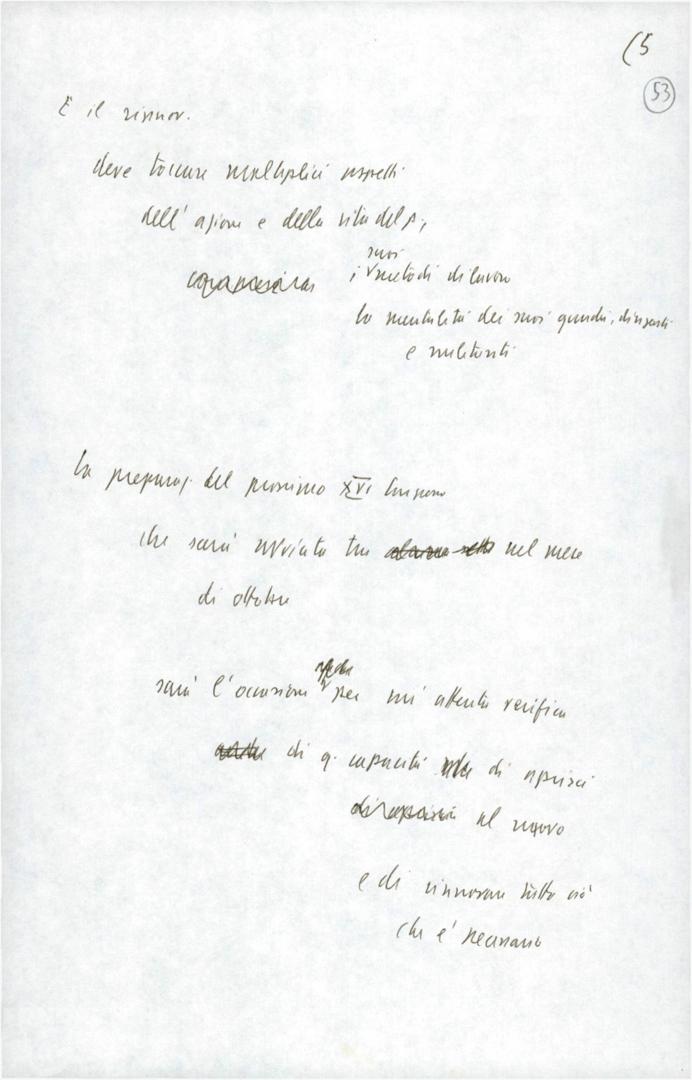 (5
53
E il rinnov.
deve toccare molteplici aspetti
dell'azione e della vita del p,
suoi
i metodi di lavoro
la mentalità dei suoi quadri, dirigenti
e militanti
La preparaz. del prossimo XVI Congresso
che sarà avviata tra nel mese
di ottobre
sarà l'occasione per un'attenta verifica
di q. capacità di aprirci
al nuovo
e di rinnovare tutto ciò
che e' necessario